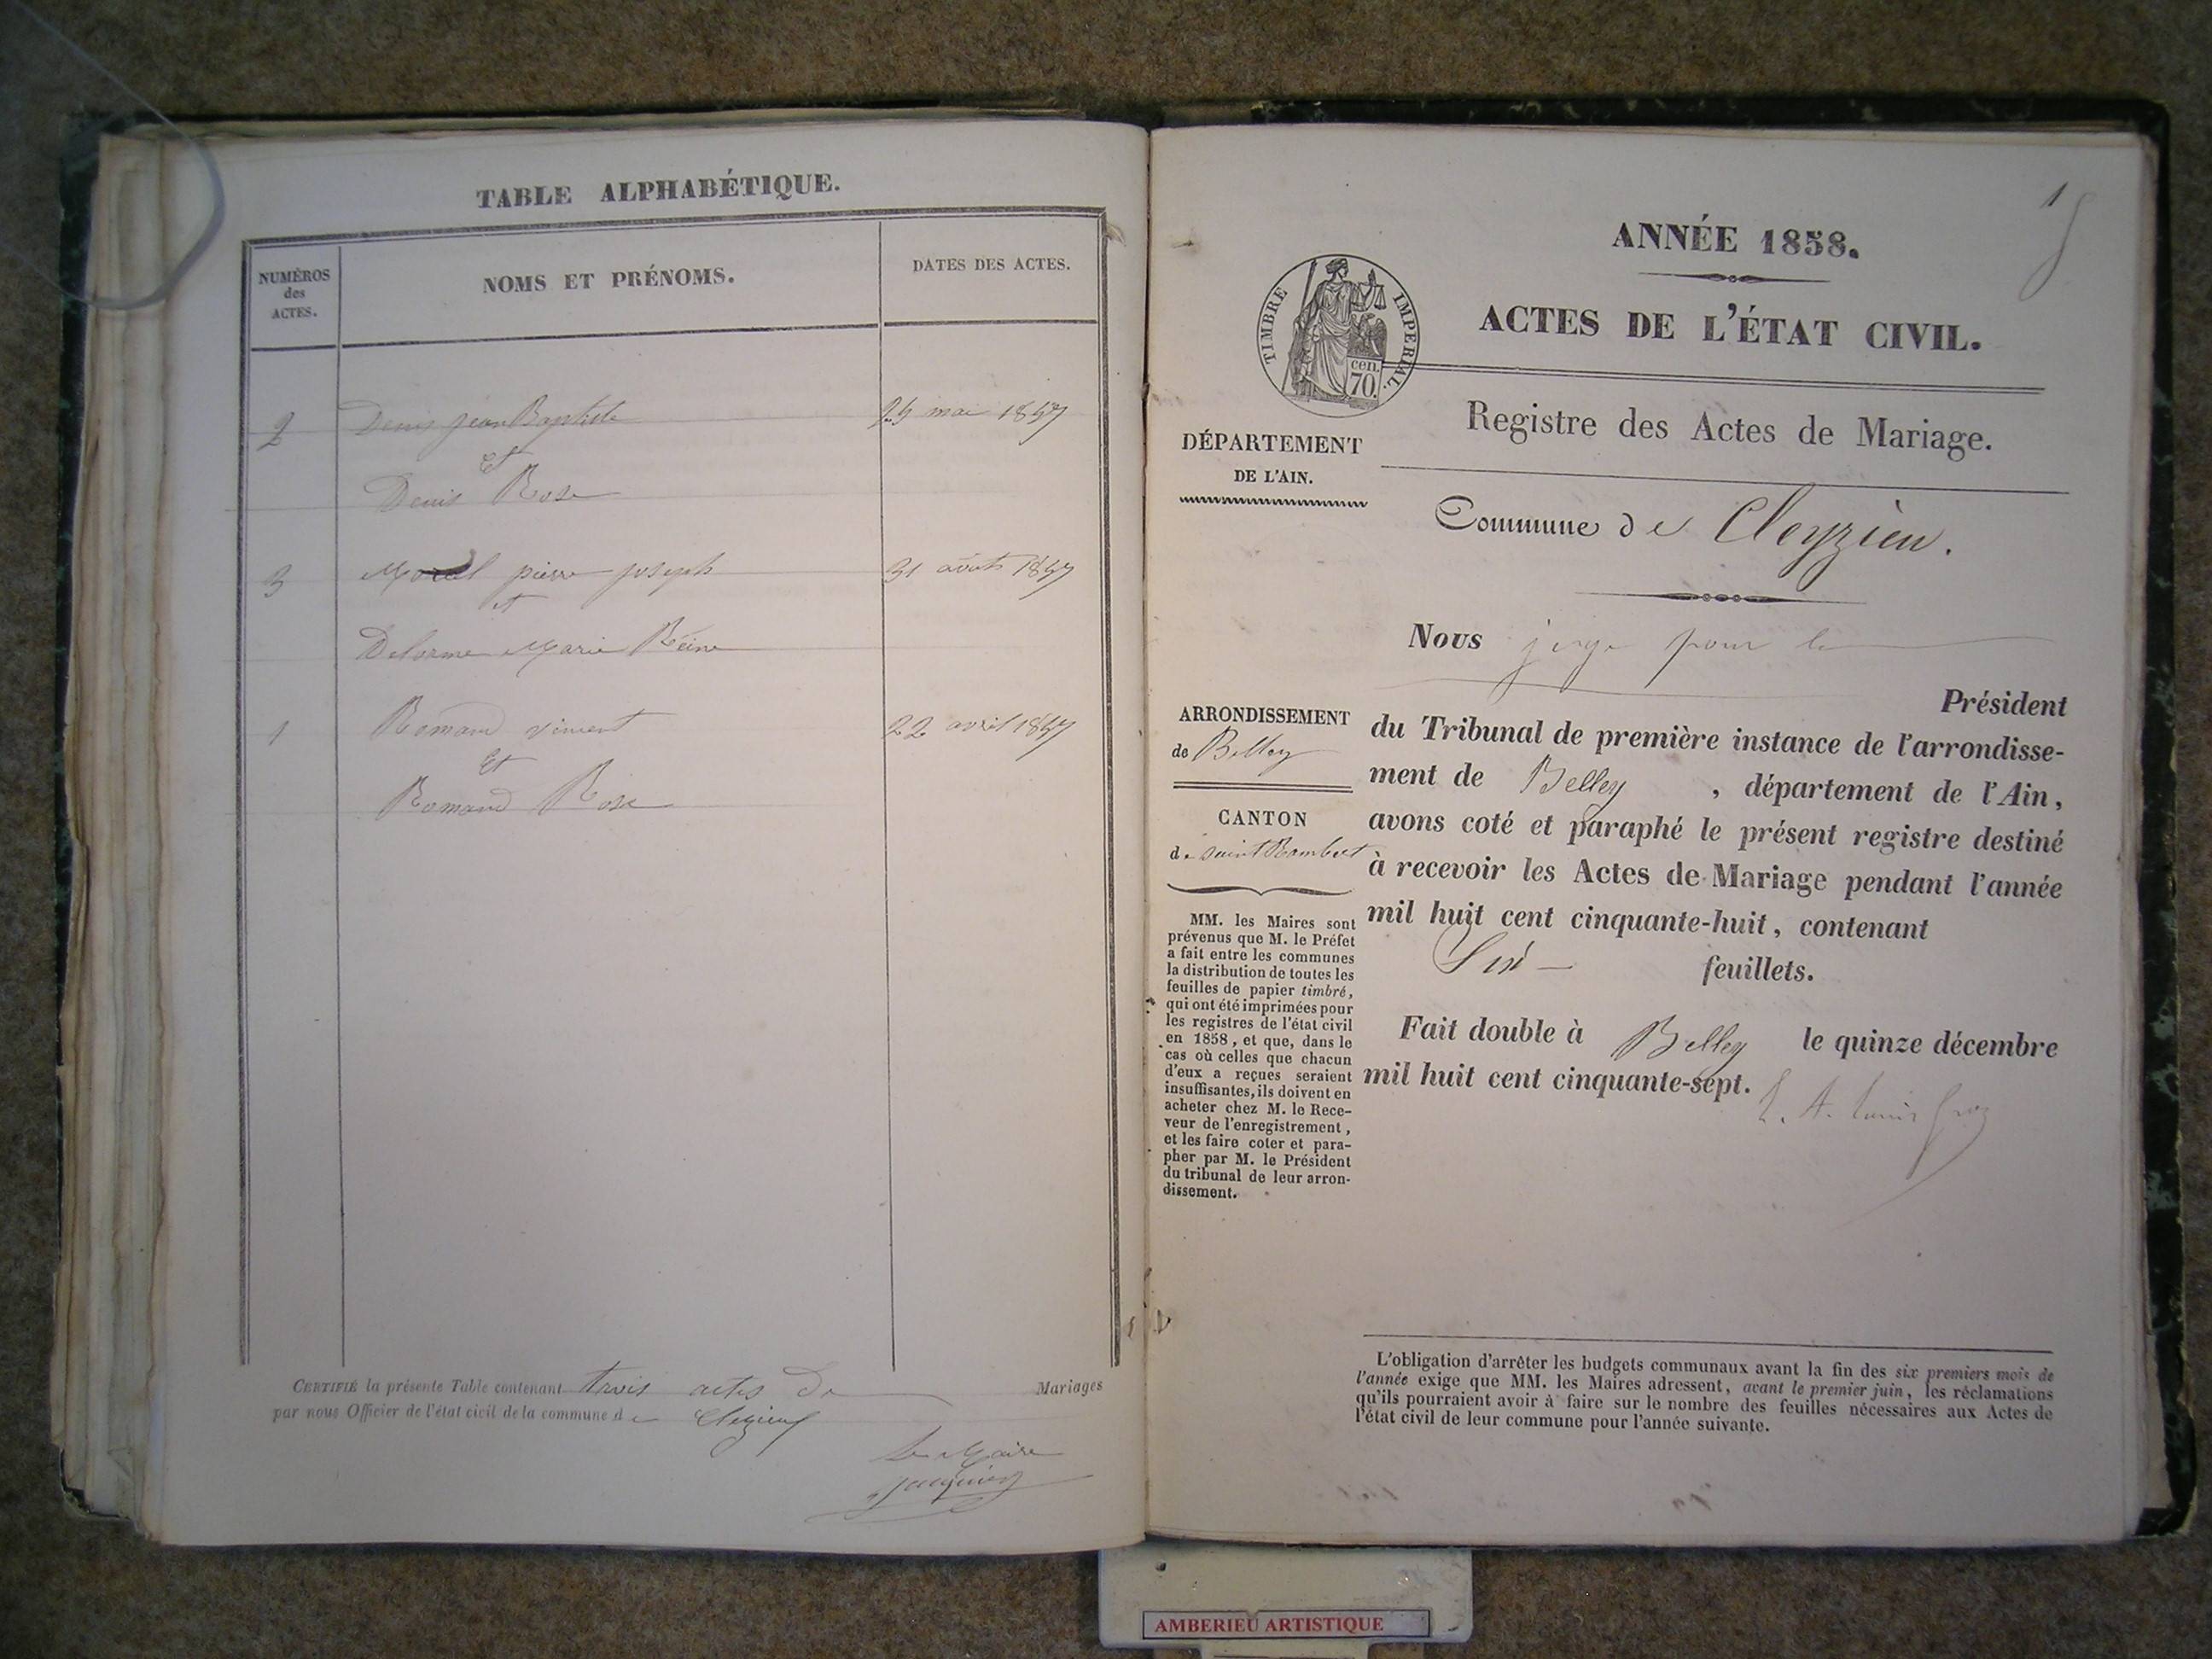 TABLE ALPHABÉTIQUE.
NUMÉROS
des
ACTES.
NOMS ET PRÉNOMS.
DATES DES ACTES.
2 Denis jean Baptiste mai 1857
et
Denis Rose
3 Morel pierre joseph 31 août 1857
et
Delorme Marie Reine
1 Romand vincent 22 avril 1857
et
Romand Rose
CERTIFIÉ la présente Table contenant trois actes de Mariages
par nous Officier de l'état civil de la commune de
Le Maire
1
ANNÉE 1858.
ACTES DE L'ÉTAT CIVIL.
TIMBRE IMPÉRIAL.
cen.
70.
Registre des Actes de Mariage.
DÉPARTEMENT
DE L'AIN.
Commune de Cleyzieu.
Nous juge pour le
Président
du Tribunal de première instance de l'arrondisse-
ment de Belley , département de l'Ain,
avons coté et paraphé le présent registre destiné
à recevoir les Actes de Mariage pendant l'année
mil huit cent cinquante-huit, contenant
Six feuillets.
Fait double à Belley le quinze décembre
mil huit cent cinquante-sept.
ARRONDISSEMENT
de Belley
CANTON
de saint Rambert
MM. les Maires sont
prévenus que M. le Préfet
a fait entre les communes
la distribution de toutes les
feuilles de papier timbré,
qui ont été imprimées pour
les registres de l'état civil
en 1858, et que, dans le
cas où celles que chacun
d'eux a reçues seraient
insuffisantes, ils doivent en
acheter chez M. le Rece-
veur de l'enregistrement,
et les faire coter et para-
pher par M. le Président
du tribunal de leur arron-
dissement.
L'obligation d'arrêter les budgets communaux avant la fin des six premiers mois de
l'année exige que MM. les Maires adressent, avant le premier juin, les réclamations
qu'ils pourraient avoir à faire sur le nombre des feuilles nécessaires aux Actes de
l'état civil de leur commune pour l'année suivante.
AMBERIEU ARTISTIQUE